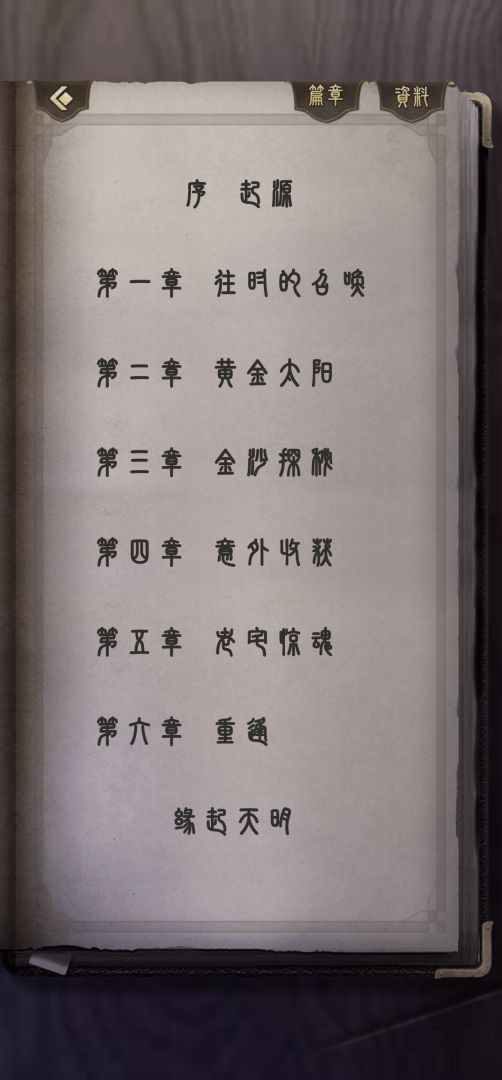 篇章 資料
序 起源
第一章 往时的召唤
第二章 黄金太阳
第三章 金沙探秘
第四章 意外收获
第五章 老宅惊魂
第六章 重逢
缘起天明